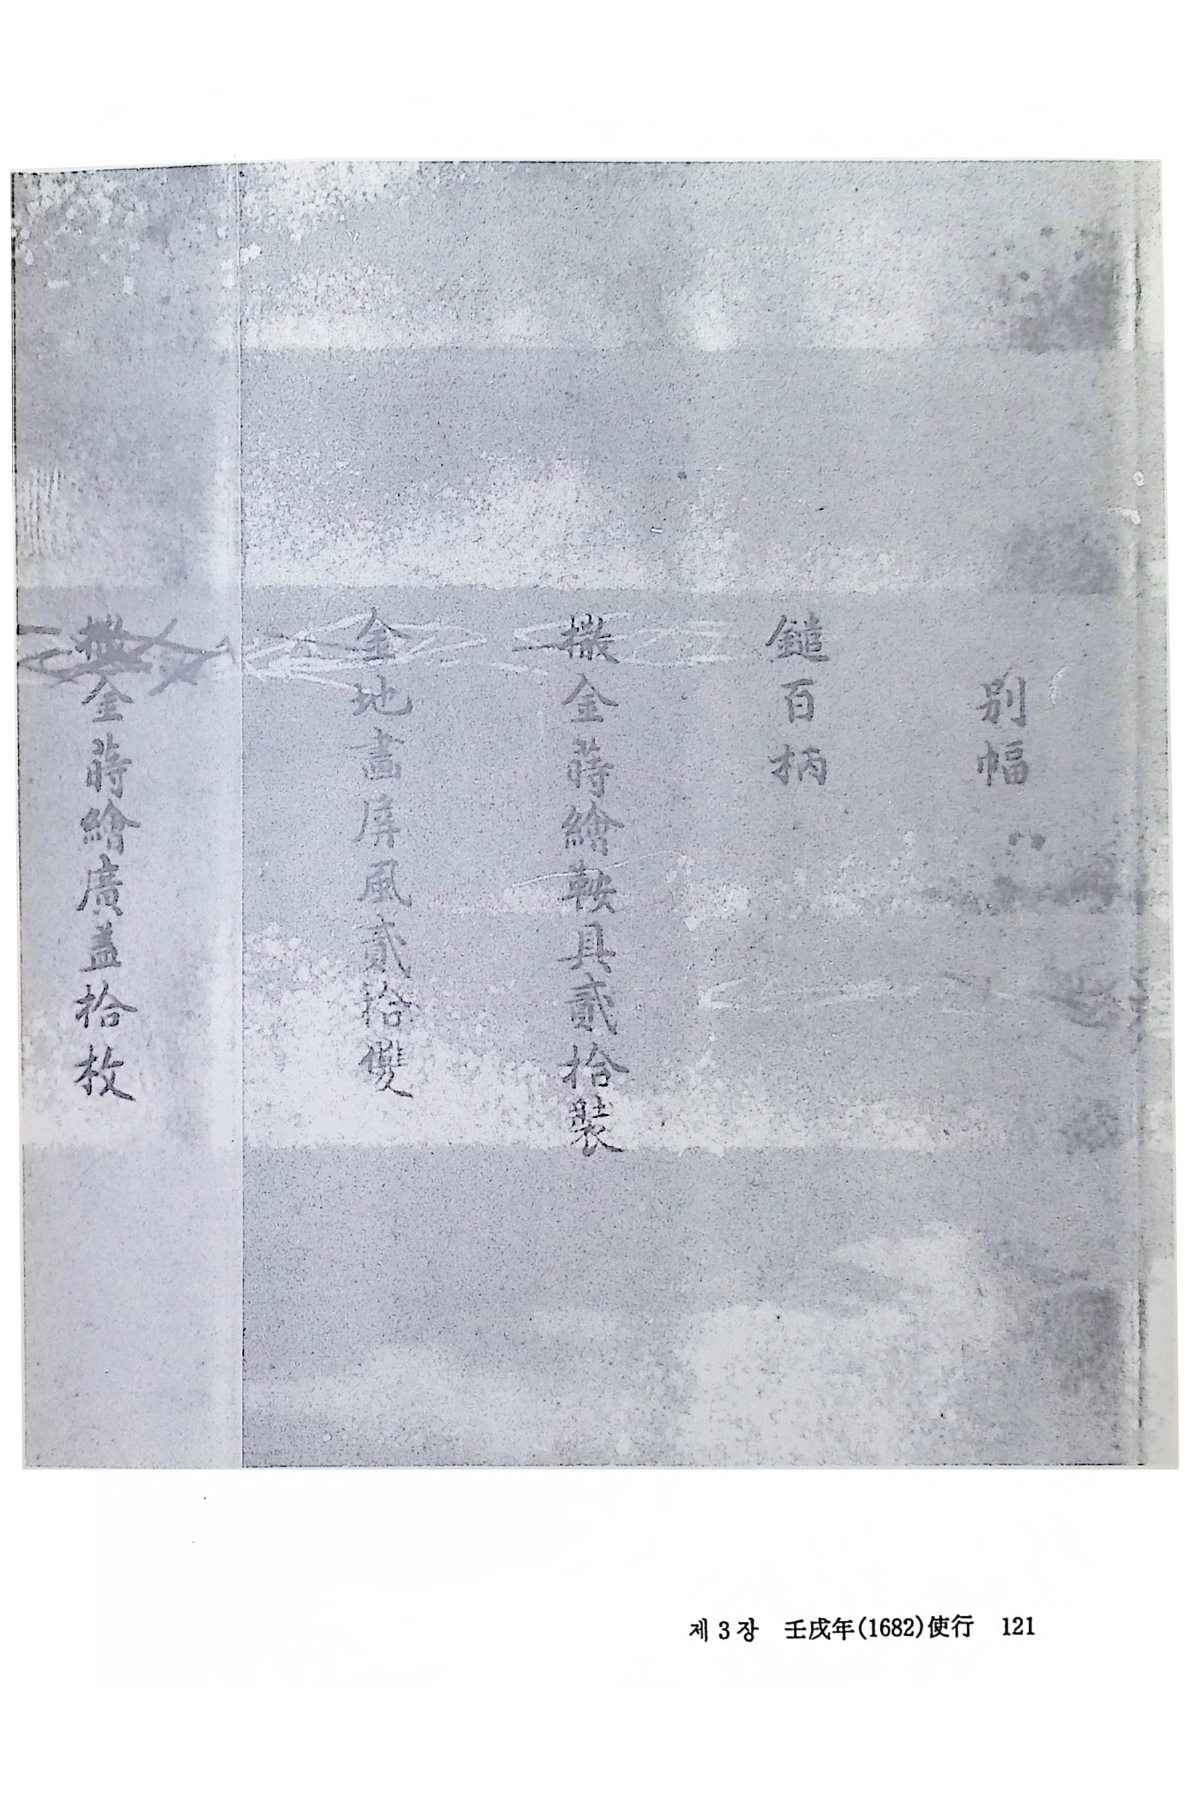 別幅
鎚百柄
撒金蒔繪鞍具貳拾裝
金地畫屛風貳拾雙
撒金蒔繪廣盖拾枚
제 3 장 壬戌年(1682)使行 121